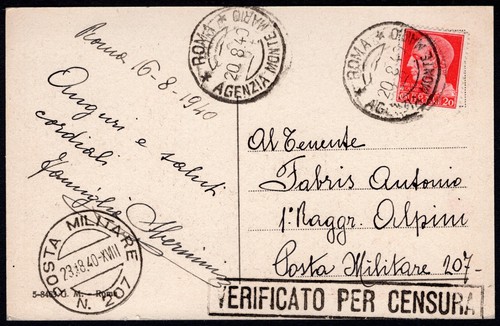 Roma 16-8-1940
Auguri e saluti
cordiali
Famiglia
* ROMA *
MONTE MARIO
20.8.40
AGENZIA
* ROMA *
MONTE MARIO
20.8.40
AGENZIA
20
Al Tenente
Fabris Antonio
1º Raggr. Alpini
Posta Militare 207-
POSTA MILITARE
23.8.40-XVIII
N. 207
G. M. - Roma
VERIFICATO PER CENSURA